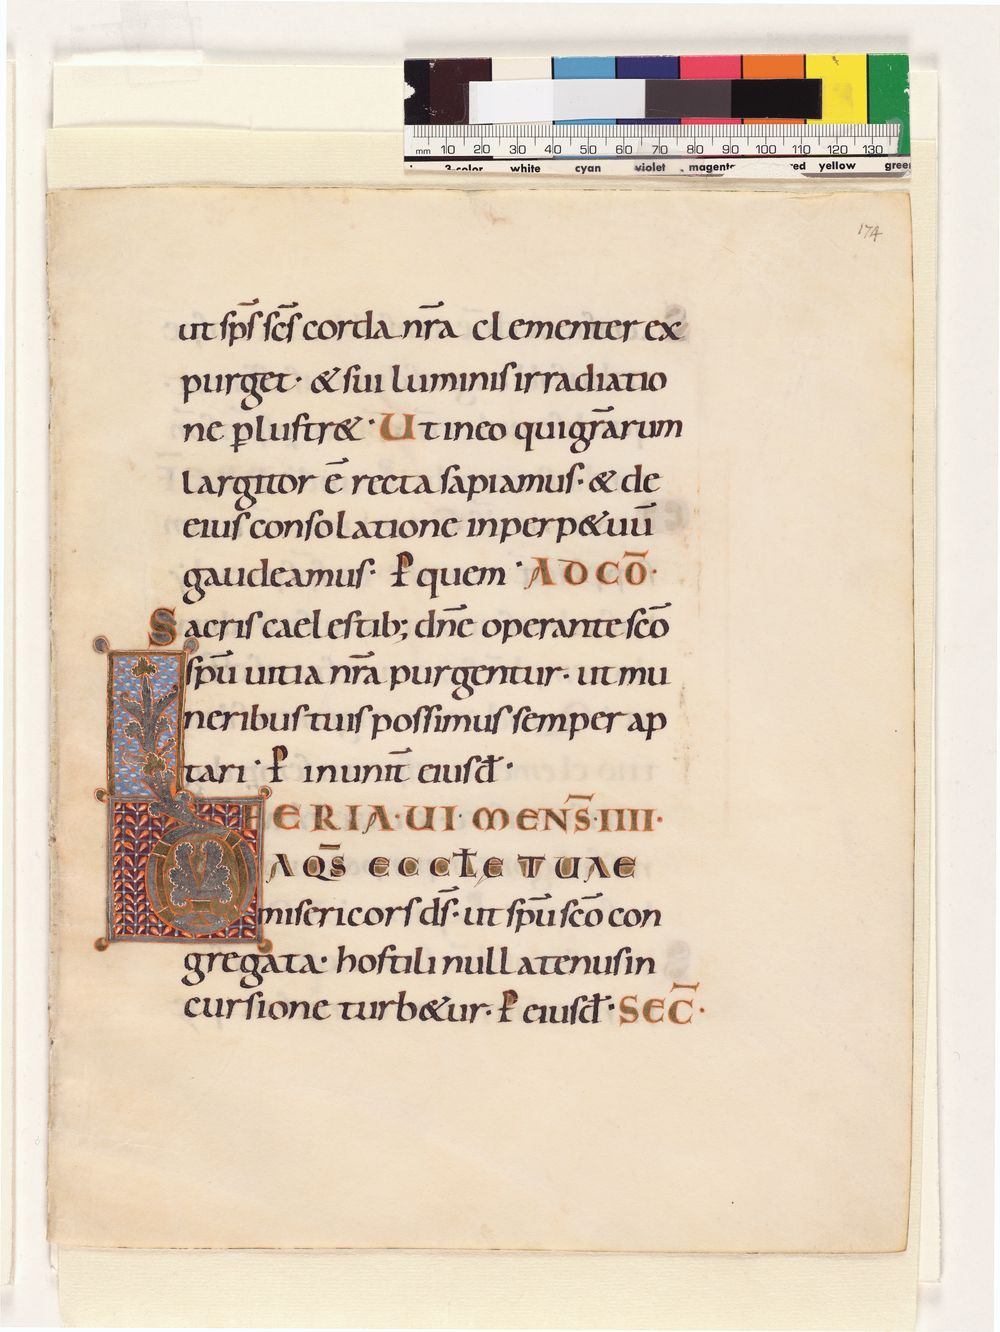 mm 10 20 30 40 50 60 70 80 90 100 110 120 130
3-color white cyan violet magenta red yellow green
174
ut sp̄s sc̄s corda nr̄a clementer ex
purget· & sui luminis irradiatio
ne p̲lustr&· Ut in eo qui gr̄arum
largitor ē recta sapiamus· & de
eius consolatione in perp&uū
gaudeamus· P̲ quem· AD CŌ·
Sacris caelestib; dn̄e operante scō
sp̄u uitia nr̄a purgentur· ut mu
neribus tuis possimus semper ap
tari· P̲ in unit̄ eiusđ·
FERIA·UI·MENS̄·IIII·
DA QS̄ ECCŁE TUAE
misericors ds̄· ut sp̄u scō con
gregata· hostili nullatenus in
cursione turb&ur· P̲ eiusđ· SEC̄·